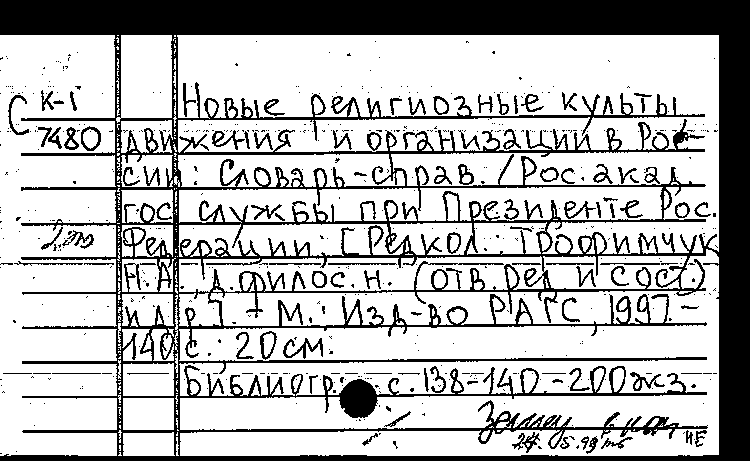 С К-1 Новые религиозные культы
7480 движения и организации в Рос-
сии: Словарь-справ. / Рос. акад.
гос службы при Президенте Рос.
Федерации; [Редкол.: Трофимчук
Н.А., д.филос.н. (отв.ред и сост.)
и др.]. - М.: Изд-во РАГС, 1997.-
140 с.; 20 см.
Библиогр.: с. 138-140.-200экз.
НЕ